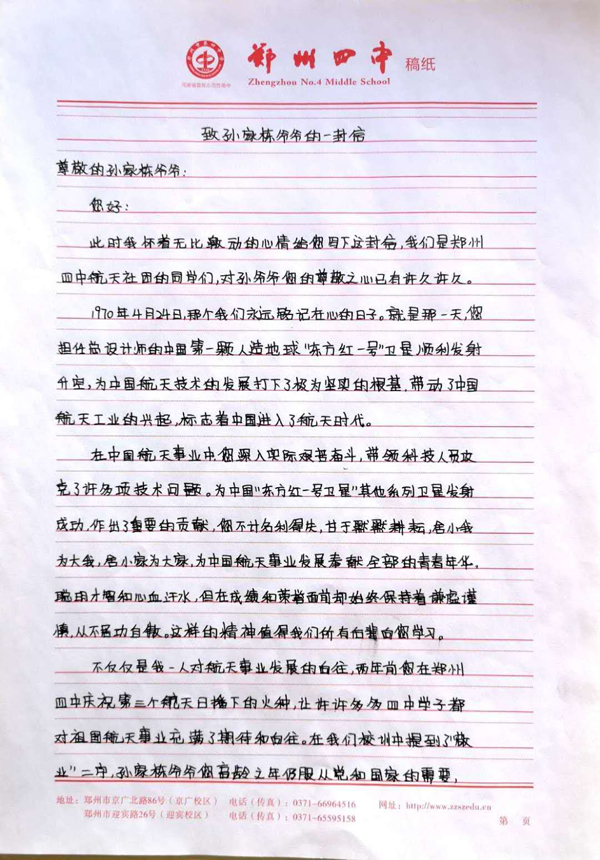 郑州四中 稿纸
Zhengzhou No.4 Middle School
致孙家栋爷爷的一封信
尊敬的孙家栋爷爷:
您好:
此时我怀着无比激动的心情给您写下这封信,我们是郑州
四中航天社团的同学们,对孙爷爷您的尊敬之心已有许久许久。
1970年4月24日,那个我们永远铭记在心的日子。就是那一天,您
担任总设计师的中国第一颗人造地球"东方红一号"卫星顺利发射
升空,为中国航天技术的发展打下了极为坚实的根基,带动了中国
航天工业的兴起,标志着中国进入了航天时代。
在中国航天事业中您深入实际艰苦奋斗,带领科技人员攻
克了许多项技术问题。为中国"东方红一号卫星"其他系列卫星发射
成功,作出了重要的贡献,您不计名利得失,甘于默默耕耘,舍小我
为大我,舍小家为大家,为中国航天事业发展奉献全部的青春年华,
聪明才智和心血汗水,但在成绩和荣誉面前却始终保持着谦虚谨
慎,从不居功自傲。这样的精神值得我们所有后辈向您学习。
不仅仅是我一人对航天事业发展的向往,两年前您在郑州
四中庆祝第三个航天日播下的火种,让许许多多四中学子都
对祖国航天事业充满了期待和向往。在我们校训中提到了"敬
业"二字,孙家栋爷爷您高龄之年仍服从党和国家的需要,
地址:郑州市京广北路86号(京广校区) 电话(传真):0371-66964516 网址:http://www.zzszedu.cn
郑州市迎宾路26号(迎宾校区) 电话(传真):0371-65595158
第 页